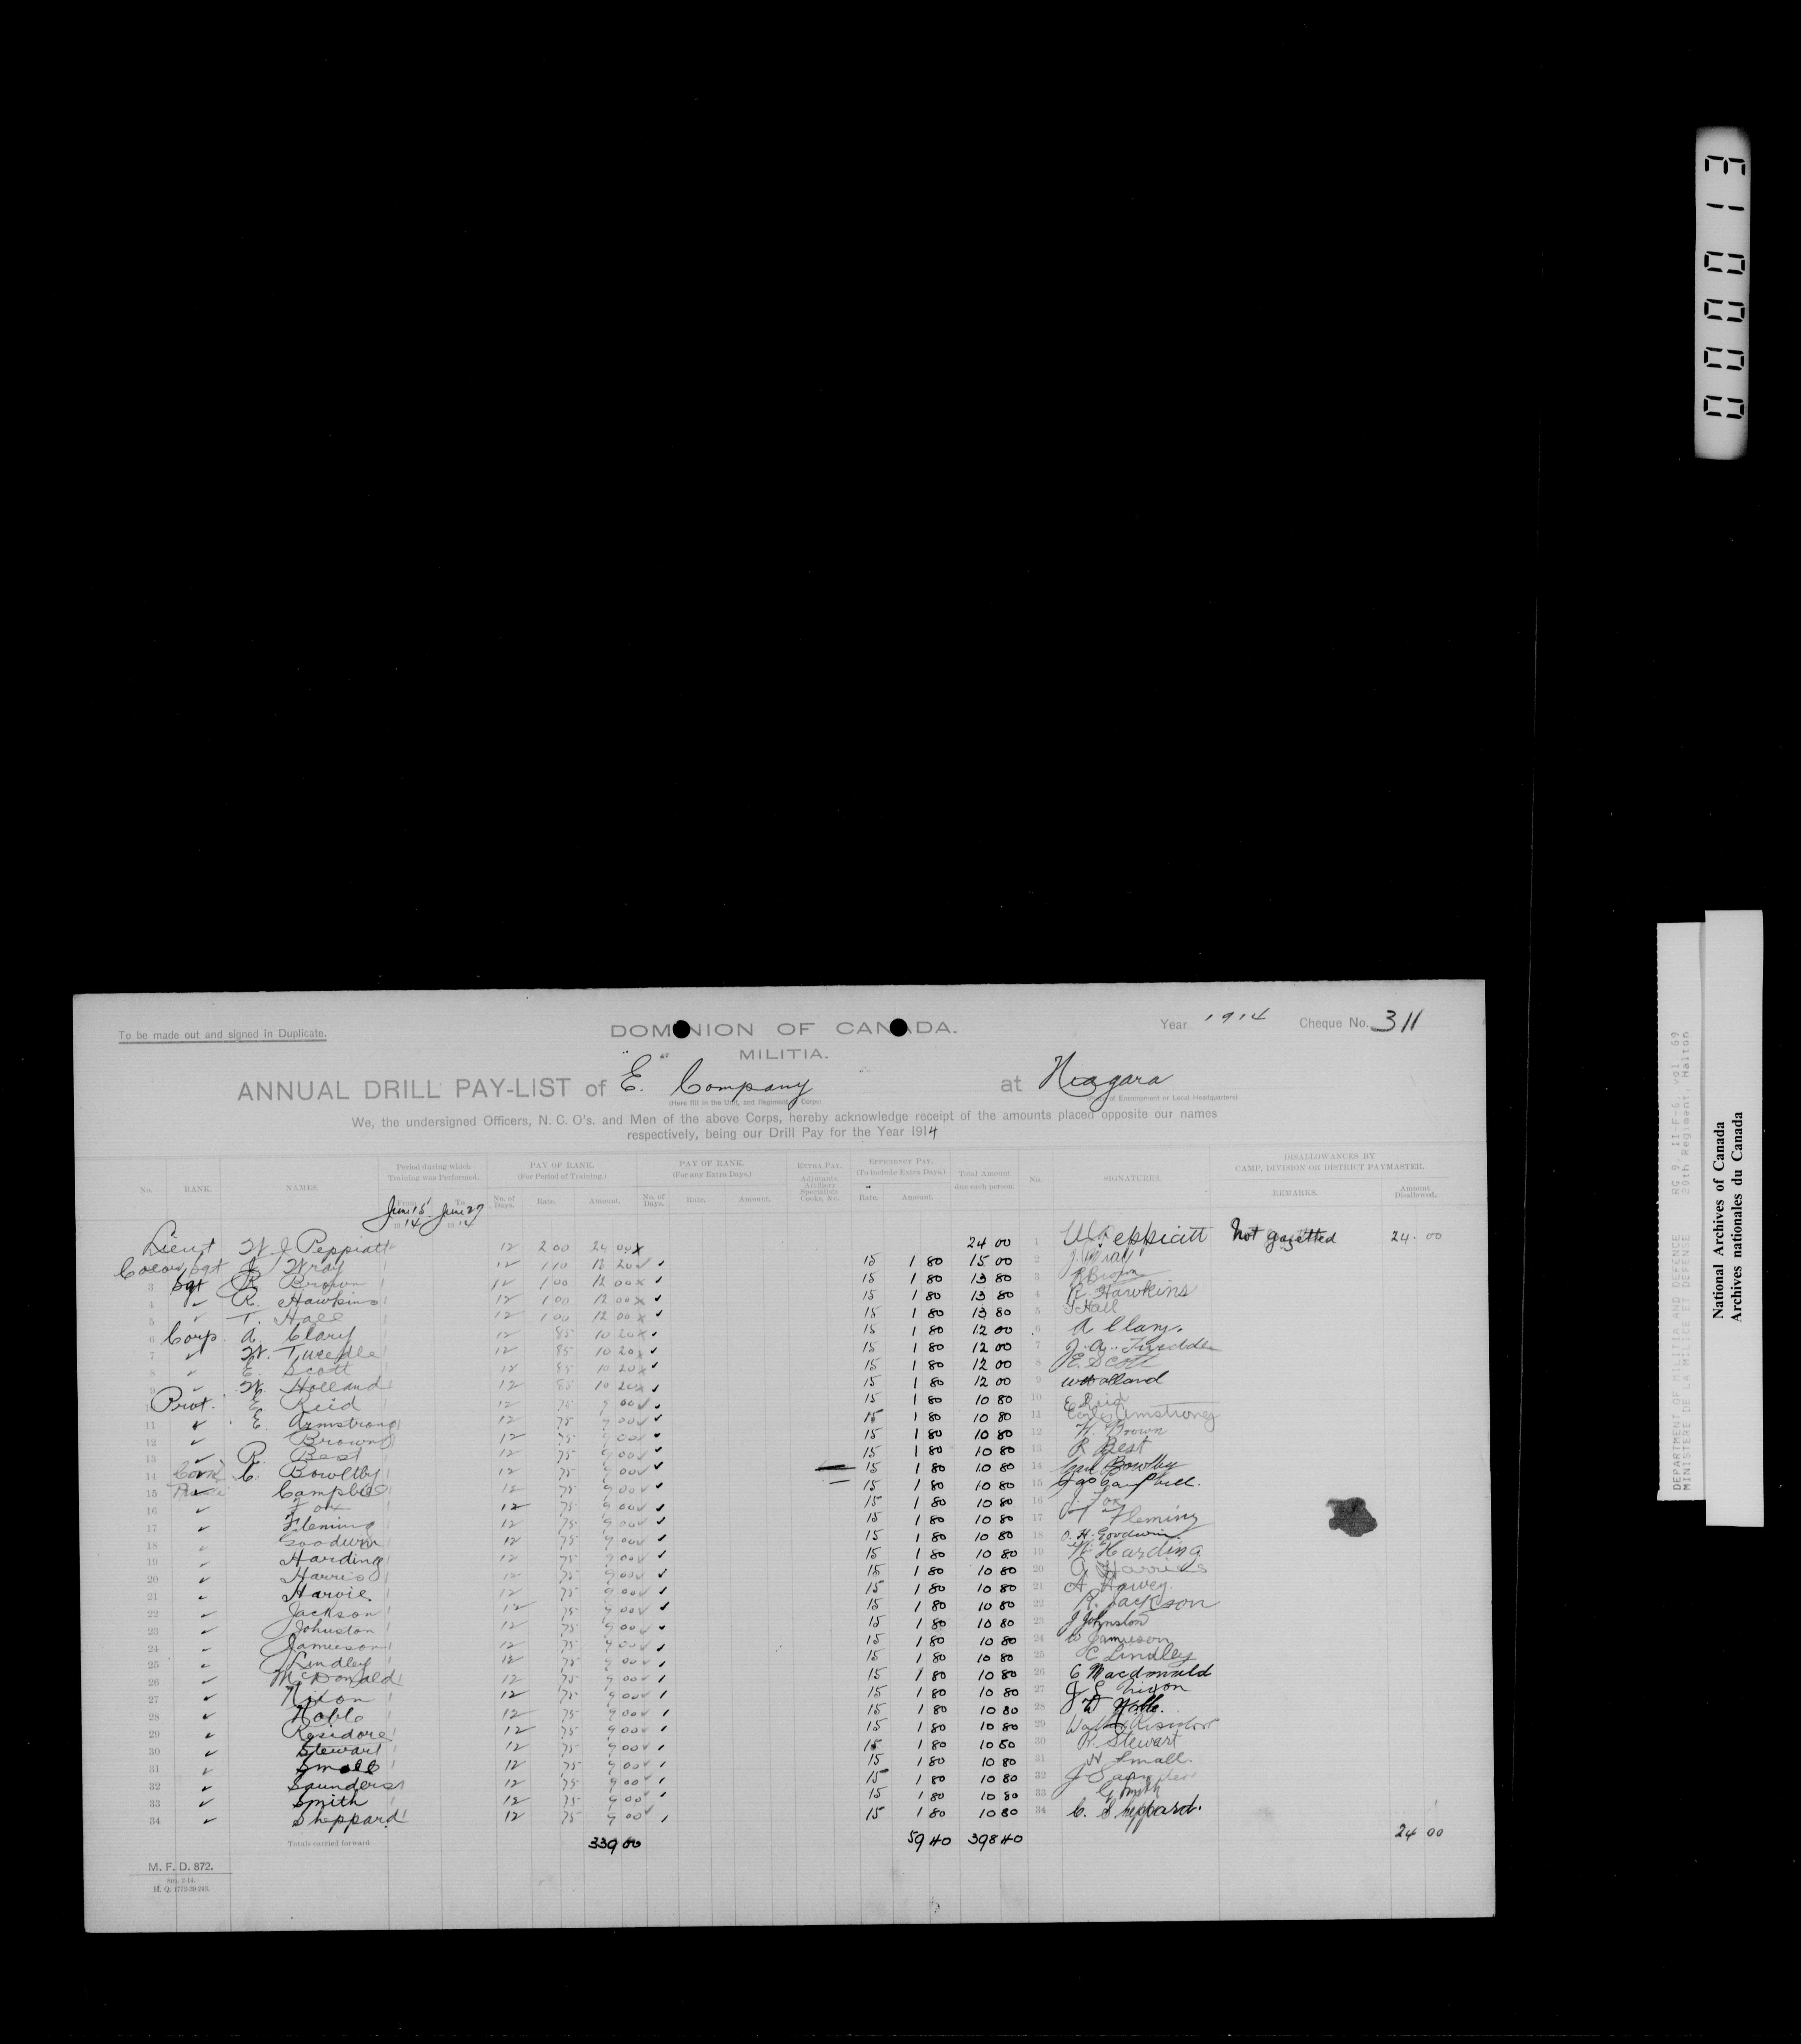 To be made out and signed in Duplicate.
DOMINION OF CANADA.
Year 1914 Cheque No. 311
MILITIA.
ANNUAL DRILL PAY-LIST of "E" Company at Niagara
(Here fill in the Unit, and Regiment Corps) of Encampment or Local Headquarters)
We, the undersigned Officers, N. C. O's. and Men of the above Corps, hereby acknowledge receipt of the amounts placed opposite our names
respectively, being our Drill Pay for the Year 1914
No. RANK. NAMES. Period during which Training was Performed. From June 15 1914 To June 27 1914 PAY OF RANK. (For Period of Training.) No. of Days. Rate. Amount. PAY OF RANK. (For any Extra Days.) No. of Days. Rate. Amount. EXTRA PAY. Adjutants, Artillery Specialists Cooks, &c. EFFICIENCY PAY. (To include Extra Days.) Rate. Amount. Total Amount due each person. No. SIGNATURES. DISALLOWANCES BY CAMP, DIVISION OR DISTRICT PAYMASTER. REMARKS. Amount Disallowed.
Lieut W. J. Peppiatt 12 2 00 24 00 x 24 00 1 Not gazetted 24 00
Colour Sgt J Wray 12 1 10 13 20 ✓ 15 1 80 15 00 2 J. Wray
3 Sgt R Brown 12 1 00 12 00 x ✓ 15 1 80 13 80 3 R Brown
4 ✓ R. Hawkins 12 1 00 12 00 x ✓ 15 1 80 13 80 4 R. Hawkins
5 ✓ T. Hall 12 1 00 12 00 x ✓ 15 1 80 13 80 5 T Hall
6 Corp. A. Clary 12 85 10 20 x ✓ 15 1 80 12 00 6 A Clary.
7 ✓ W. Tweedle 12 85 10 20 x ✓ 15 1 80 12 00 7 J. A.
8 ✓ E. Scott 12 85 10 20 x ✓ 15 1 80 12 00 8 E. Scott
9 ✓ W. Holland 12 85 10 20 x ✓ 15 1 80 12 00 9 W Holland
Privt. E Reid 12 75 9 00 ✓ 15 1 80 10 80 10 E Reid
11 ✓ E. Armstrong 12 75 9 00 ✓ ✓ 15 1 80 10 80 11 Armstrong
12 ✓ Brown 12 75 9 00 ✓ 15 1 80 10 80 12 H. Brown
13 ✓ R. Best 12 75 9 00 ✓ ✓ 15 1 80 10 80 13 R Best
14 C. Bowltby 12 75 9 00 ✓ ✓ 15 1 80 10 80 14 Bowlby
15 ✓ Campbell 12 75 9 00 ✓ ✓ 15 1 80 10 80 15 Campbell.
16 ✓ Fox 12 75 9 00 ✓ ✓ 15 1 80 10 80 16 J. Fox
17 ✓ Fleming 12 75 9 00 ✓ ✓ 15 1 80 10 80 17 Fleming
18 ✓ Goodwin 12 75 9 00 ✓ ✓ 15 1 80 10 80 18 O. H. Goodwin.
19 ✓ Harding 12 75 9 00 ✓ ✓ 15 1 80 10 80 19 W. Harding
20 ✓ Harris 12 75 9 00 ✓ ✓ 15 1 80 10 80 20 Harries
21 ✓ Harvie 12 75 9 00 ✓ ✓ 15 1 80 10 80 21 A. Harvey.
22 ✓ Jackson 12 75 9 00 ✓ ✓ 15 1 80 10 80 22 R. Jackson
23 ✓ Johnston 12 75 9 00 ✓ ✓ 15 1 80 10 80 23 J Johnston
24 ✓ Jamieson 12 75 9 00 ✓ ✓ 15 1 80 10 80 24 W Jamieson
25 ✓ Lindley 12 75 9 00 ✓ ✓ 15 1 80 10 80 25 C Lindley
26 ✓ McDonald 12 75 9 00 ✓ 15 1 80 10 80 26 C Macdonald
27 ✓ Nixon 12 75 9 00 ✓ 15 1 80 10 80 27 J E Nixon
28 ✓ Noble 12 75 9 00 ✓ 15 1 80 10 80 28 W Noble.
29 ✓ Residore 12 75 9 00 ✓ 15 1 80 10 80 29
30 ✓ Stewart 12 75 9 00 ✓ 15 1 80 10 80 30 R. Stewart
31 ✓ Small 12 75 9 00 ✓ 15 1 80 10 80 31 Small.
32 ✓ Saunders 12 75 9 00 ✓ 15 1 80 10 80 32 J Saunders
33 ✓ Smith 12 75 9 00 ✓ 15 1 80 10 80 33 G Smith
34 ✓ Sheppard 12 75 9 00 ✓ 15 1 80 10 80 34 C. Sheppard.
Totals carried forward 339 00 59 40 398 40 24 00
M. F. D. 872.
H. Q. 1772-39-243.
000013
DEPARTMENT OF MILITIA AND DEFENCE RG 9, II-F-6, vol. 69
MINISTERE DE LA MILICE ET DEFENSE 20th Regiment, Halton
National Archives of Canada
Archives nationales du Canada